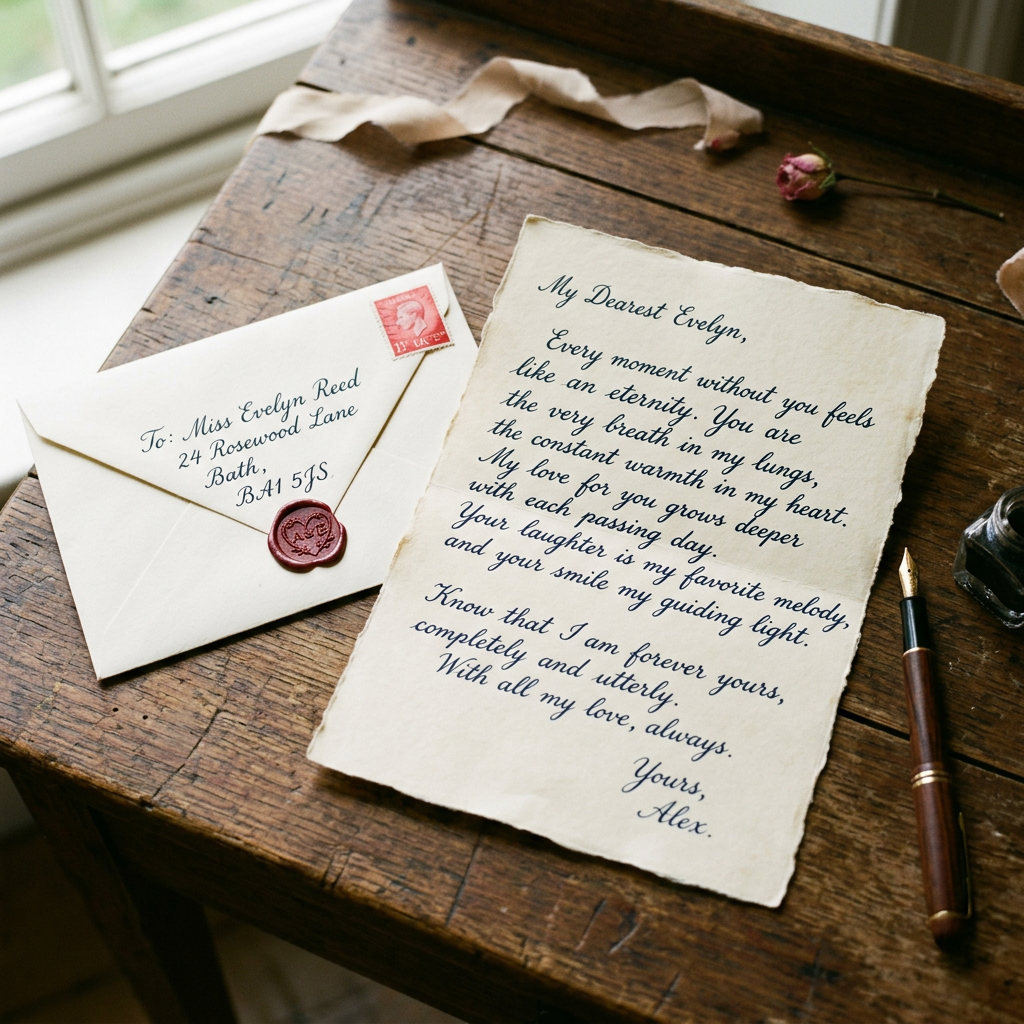 To: Miss Evelyn Reed
24 Rosewood Lane
Bath,
BA1 5JS
My Dearest Evelyn,
Every moment without you feels
like an eternity. You are
the very breath in my lungs,
the constant warmth in my heart.
My love for you grows deeper
with each passing day.
Your laughter is my favorite melody,
and your smile my guiding light.
Know that I am forever yours,
completely and utterly.
With all my love, always.
Yours,
Alex.